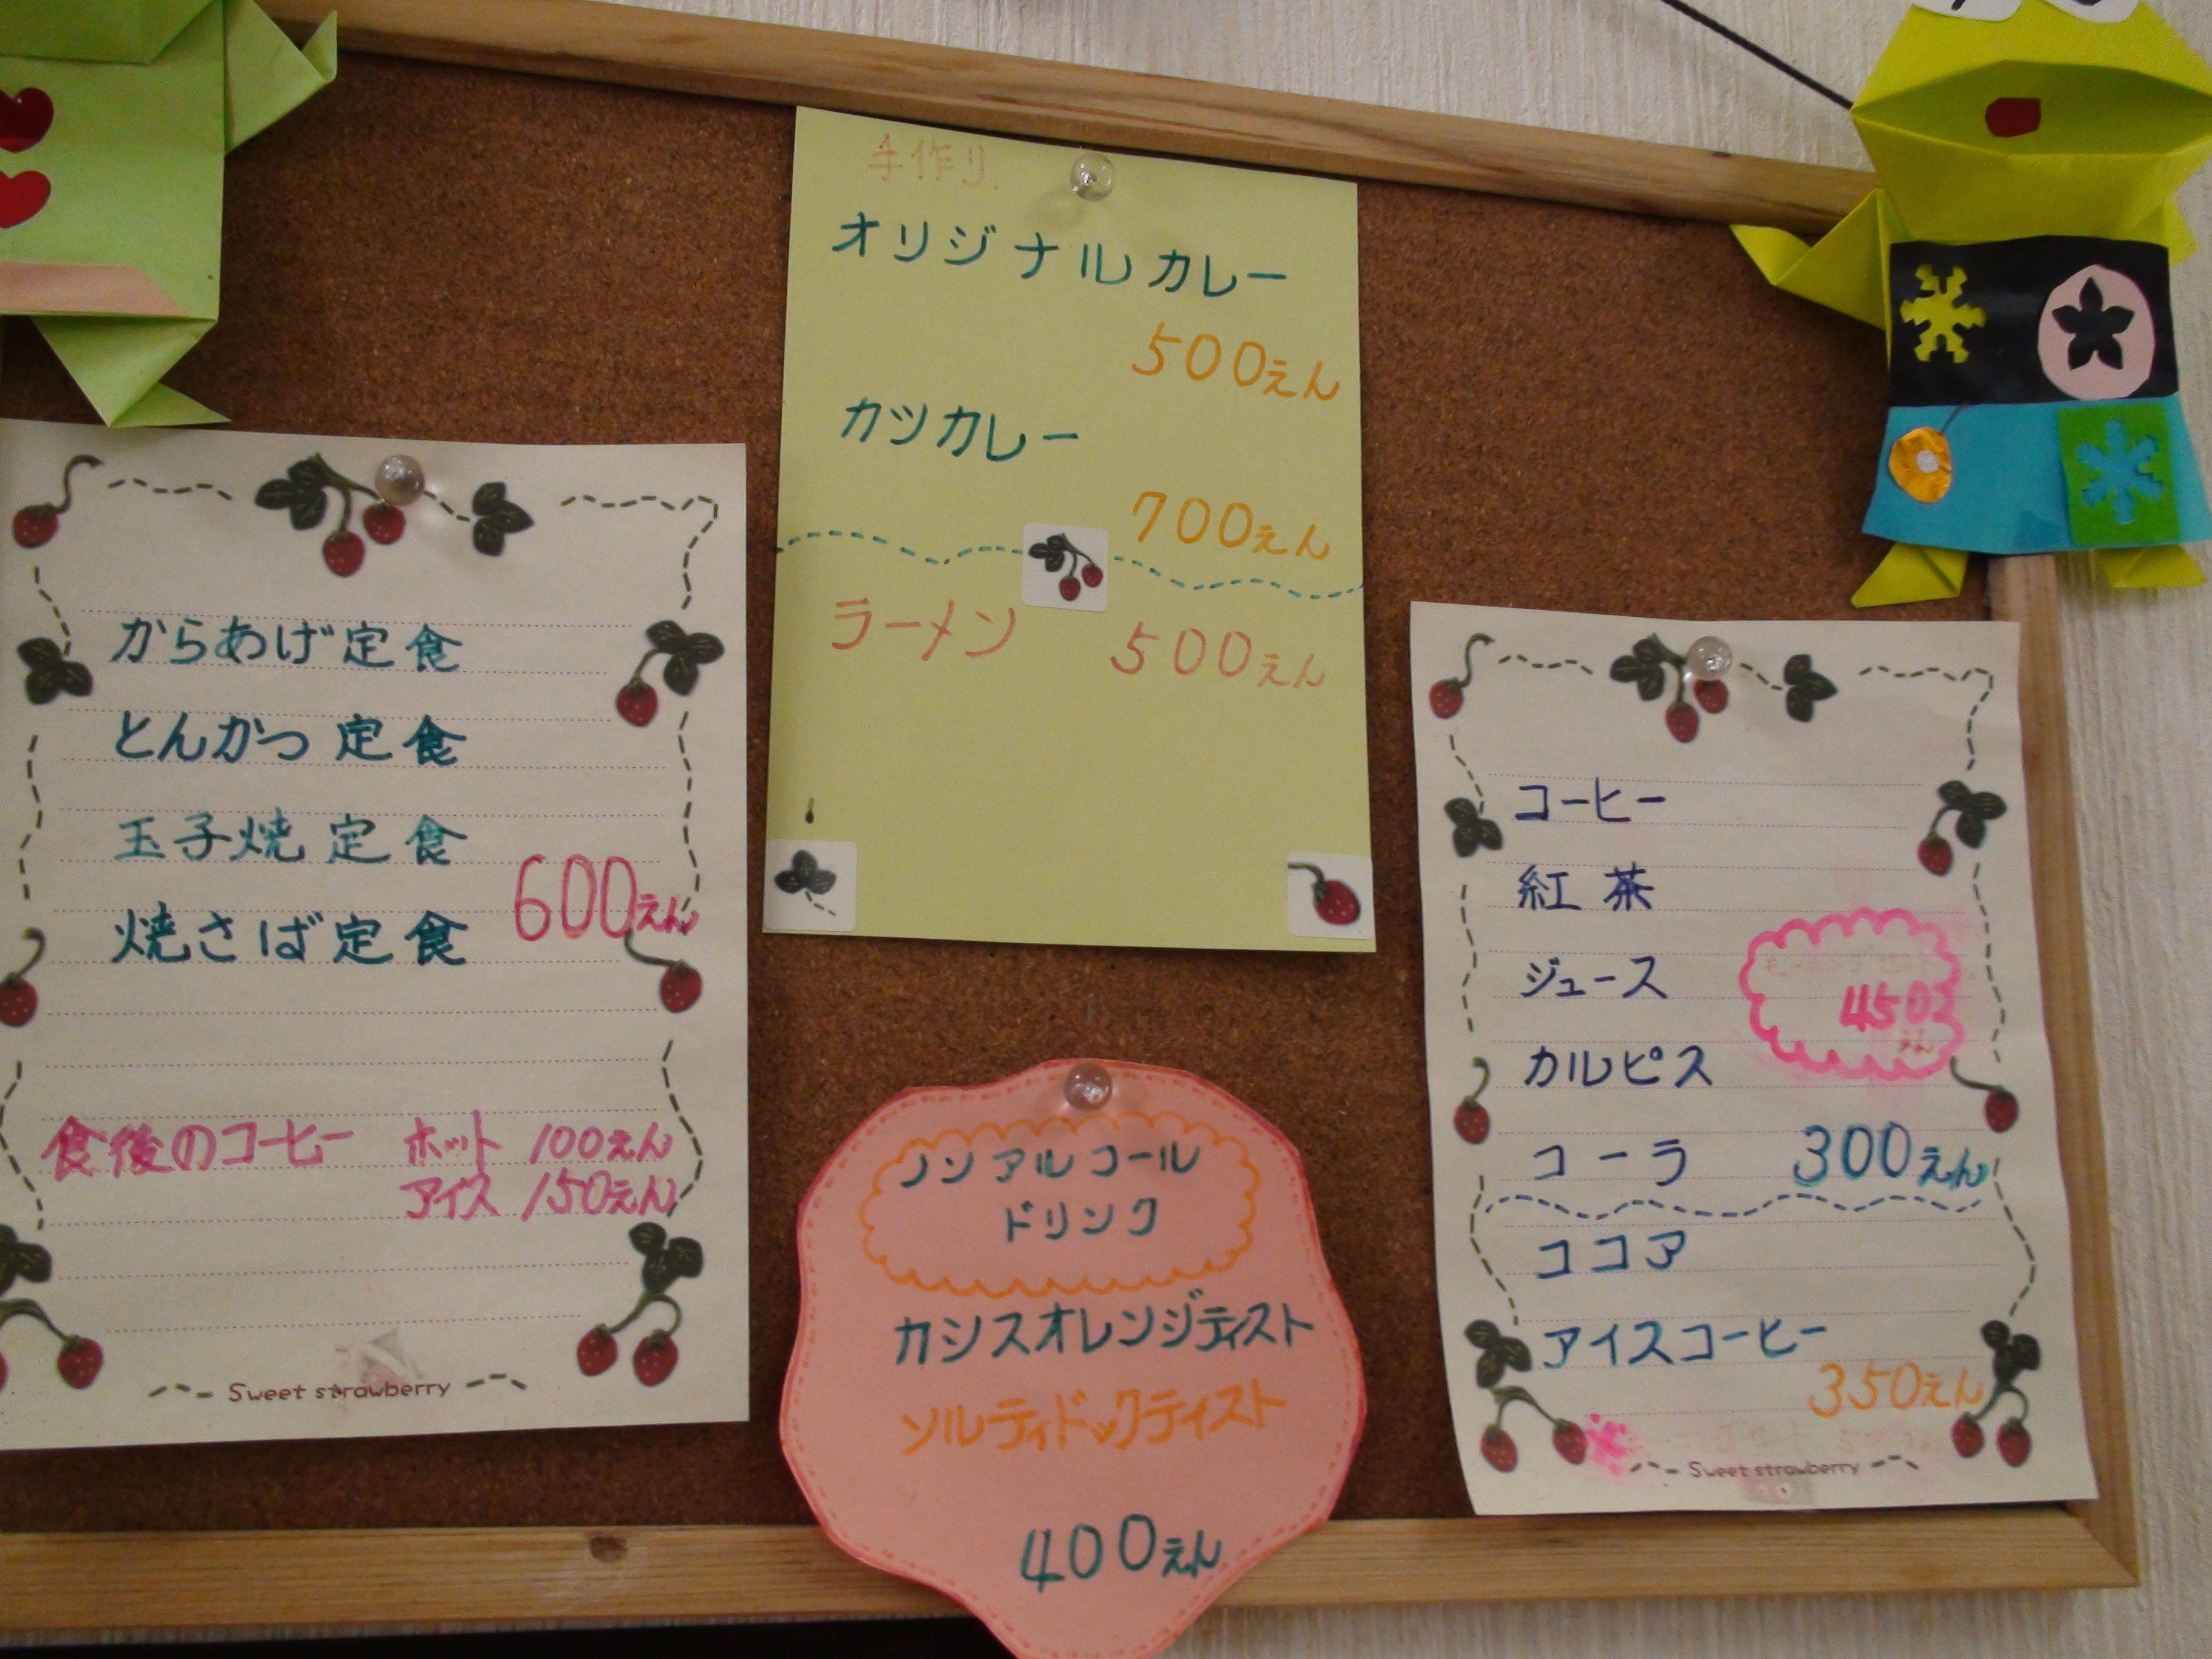 からあげ定食
とんかつ定食
玉子焼定食
焼さば定食
600えん
食後のコーヒー ホット 100えん
アイス 150えん
Sweet strawberry
手作り
オリジナルカレー
500えん
カツカレー
700えん
ラーメン 500えん
ノンアルコール
ドリンク
カシスオレンジテイスト
ソルティドックテイスト
400えん
コーヒー
紅茶
ジュース
450
カルピス
コーラ 300えん
ココア
アイスコーヒー
350えん
Sweet strawberry